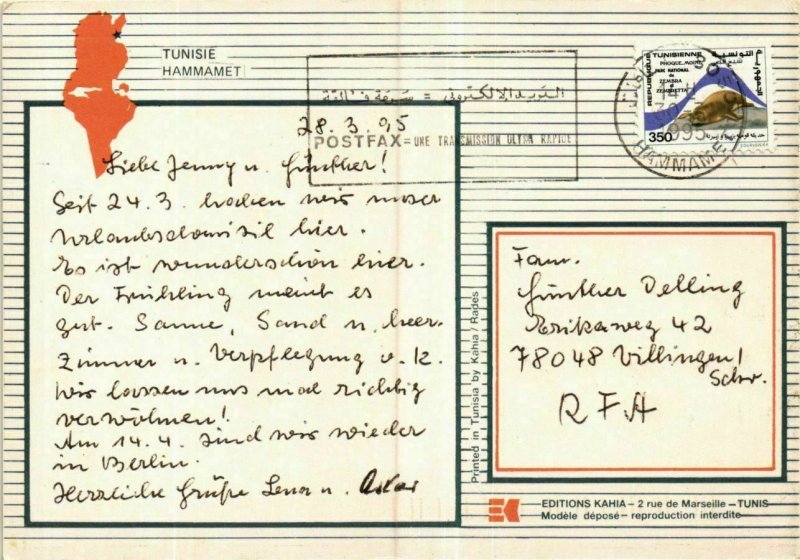 TUNISIE
HAMMAMET
البريد الإلكتروني = سريعة فائقة
POSTFAX = UNE TRANSMISSION ULTRA RAPIDE
REPUBLIQUE TUNISIENNE
الجمهورية التونسية
PHOQUE MOINE
PARC NATIONAL
de
ZEMBRA
ZEMBRETTA
350
HAMMAMET
28.3.95
Liebe Jenny u. Günther!
Seit 24.3. haben wir unser
Urlaubsdomizil hier.
Es ist wunderschön hier.
Der Frühling meint es
gut. Sonne, Sand u. Meer.
Zimmer u. Verpflegung o.k.
Wir lassen uns mal richtig
verwöhnen!
Am 14.4. sind wir wieder
in Berlin.
Herzliche Grüße Lena u.
Fam.
Günther Delling
Erikaweg 42
78048 Villingen/
Schw.
RFA
Printed in Tunisia by Kahia / Rades
EK
EDITIONS KAHIA – 2 rue de Marseille – TUNIS
Modèle déposé – reproduction interdite